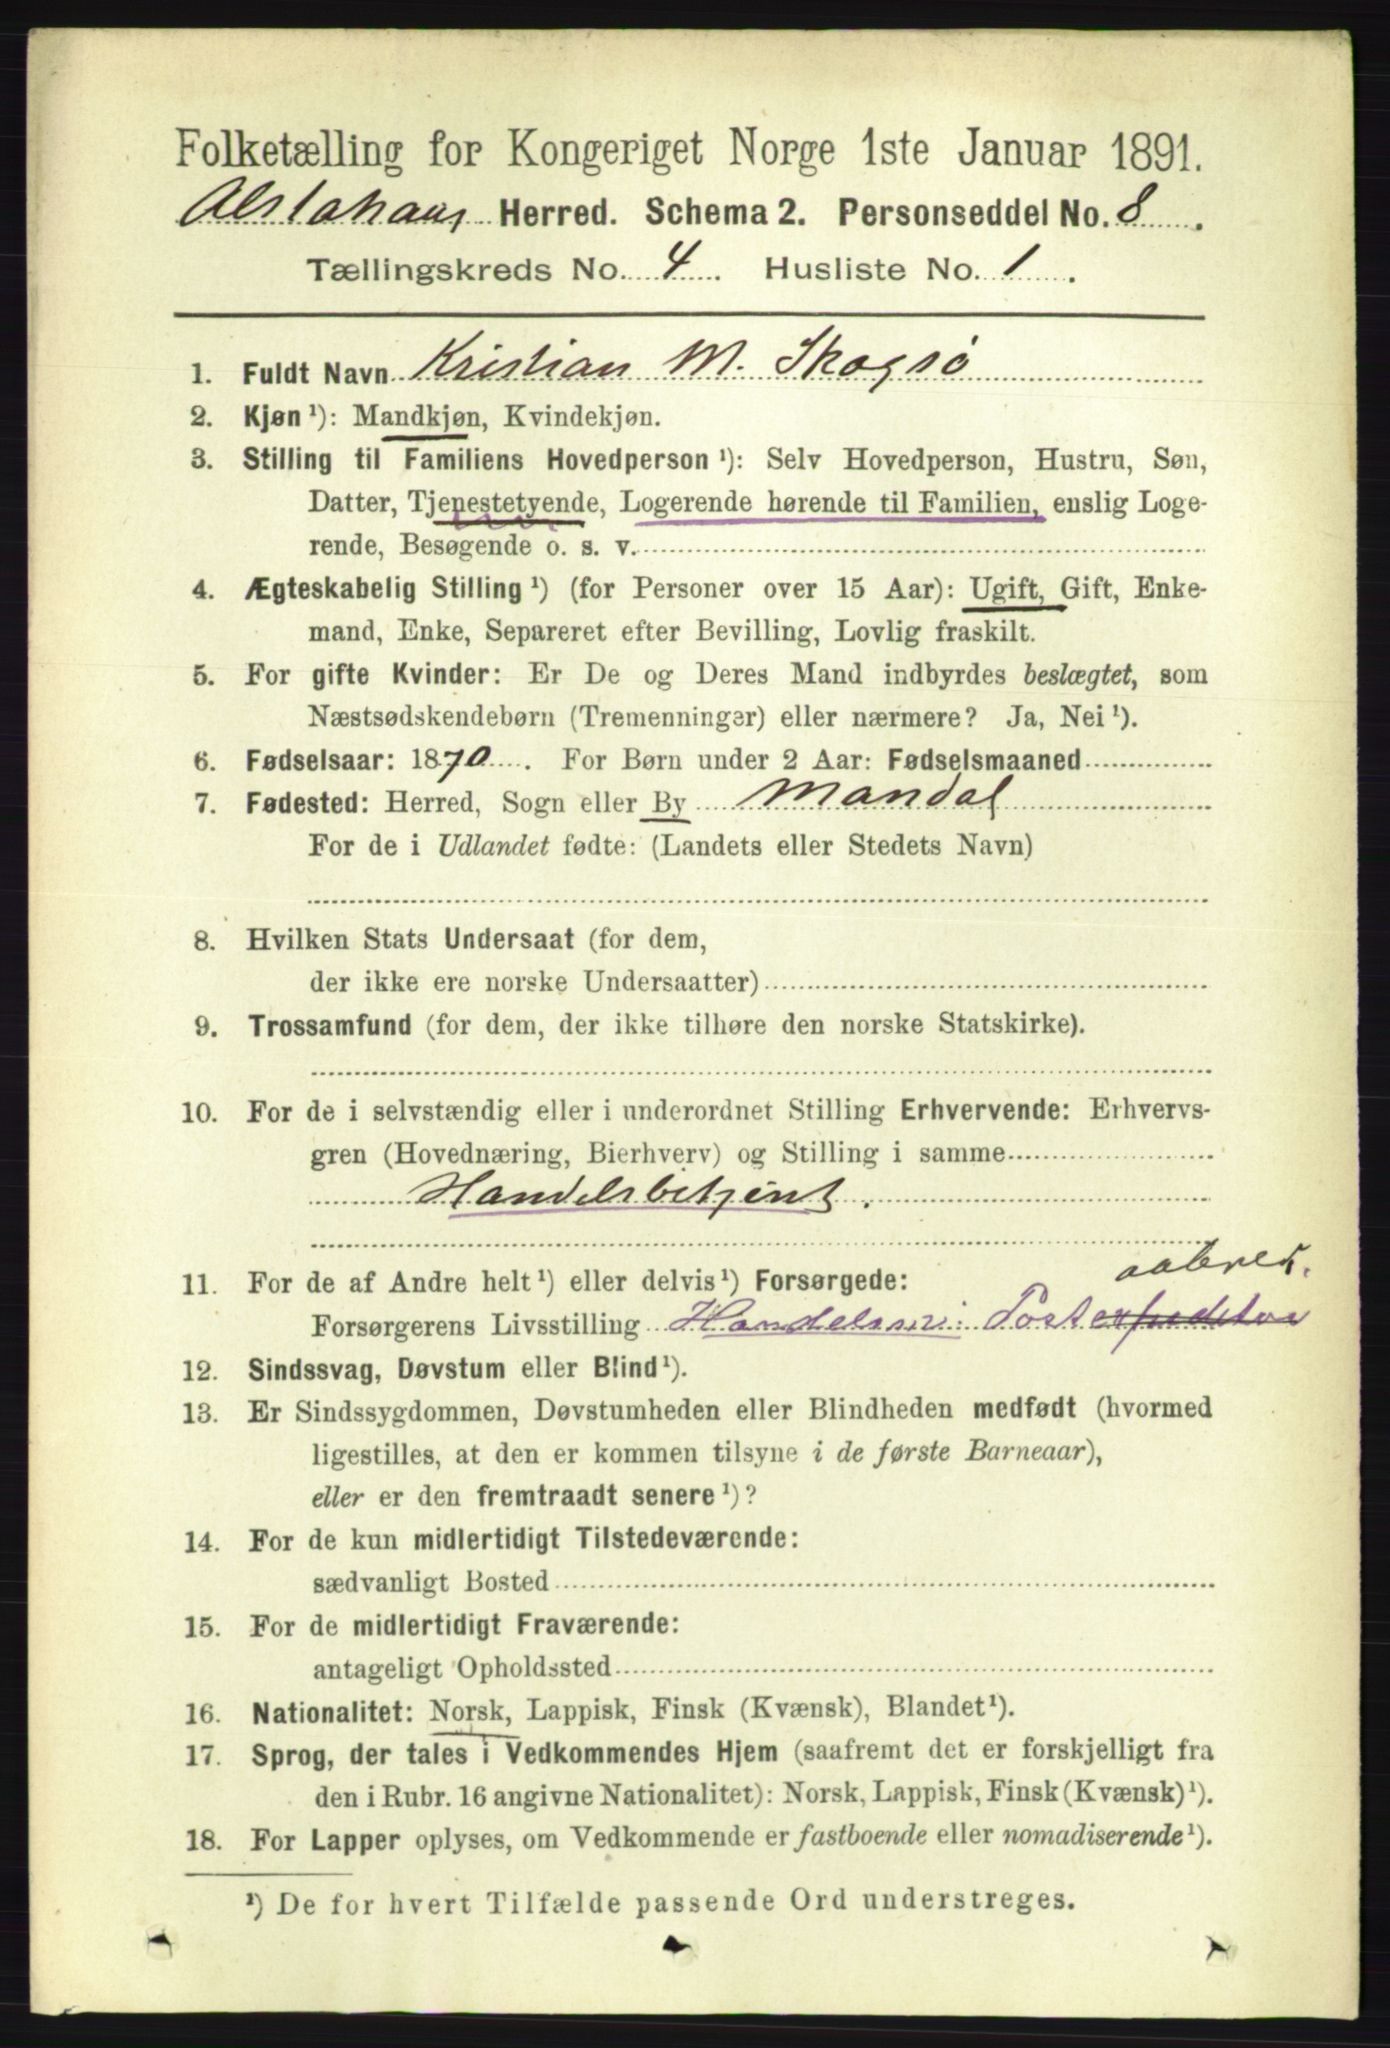 Folketælling for Kongeriget Norge 1ste Januar 1891.
Alstahaug Herred. Schema 2. Personseddel No. 8.
Tællingskreds No. 4. Husliste No. 1.
1. Fuldt Navn Kristian M. Skogsø
2. Kjøn ¹): Mandkjøn, Kvindekjøn.
3. Stilling til Familiens Hovedperson ¹): Selv Hovedperson, Hustru, Søn,
Datter, Tjenestetyende, Logerende hørende til Familien, enslig Loge-
rende, Besøgende o. s. v.
4. Ægteskabelig Stilling ¹) (for Personer over 15 Aar): Ugift, Gift, Enke-
mand, Enke, Separeret efter Bevilling, Lovlig fraskilt.
5. For gifte Kvinder: Er De og Deres Mand indbyrdes beslægtet, som
Næstsødskendebørn (Tremenninger) eller nærmere? Ja, Nei ¹).
6. Fødselsaar: 1870. For Børn under 2 Aar: Fødselsmaaned
7. Fødested: Herred, Sogn eller By Mandal
For de i Udlandet fødte: (Landets eller Stedets Navn)
8. Hvilken Stats Undersaat (for dem,
der ikke ere norske Undersaatter)
9. Trossamfund (for dem, der ikke tilhøre den norske Statskirke).
10. For de i selvstændig eller i underordnet Stilling Erhvervende: Erhvervs-
gren (Hovednæring, Bierhverv) og Stilling i samme
Handelsbetjent.
11. For de af Andre helt ¹) eller delvis ¹) Forsørgede:
Forsørgerens Livsstilling Postexpeditør
12. Sindssvag, Døvstum eller Blind ¹).
13. Er Sindssygdommen, Døvstumheden eller Blindheden medfødt (hvormed
ligestilles, at den er kommen tilsyne i de første Barneaar),
eller er den fremtraadt senere ¹)?
14. For de kun midlertidigt Tilstedeværende:
sædvanligt Bosted
15. For de midlertidigt Fraværende:
antageligt Opholdssted
16. Nationalitet: Norsk, Lappisk, Finsk (Kvænsk), Blandet ¹).
17. Sprog, der tales i Vedkommendes Hjem (saafremt det er forskjelligt fra
den i Rubr. 16 angivne Nationalitet): Norsk, Lappisk, Finsk (Kvænsk) ¹).
18. For Lapper oplyses, om Vedkommende er fastboende eller nomadiserende ¹).
¹) De for hvert Tilfælde passende Ord understreges.